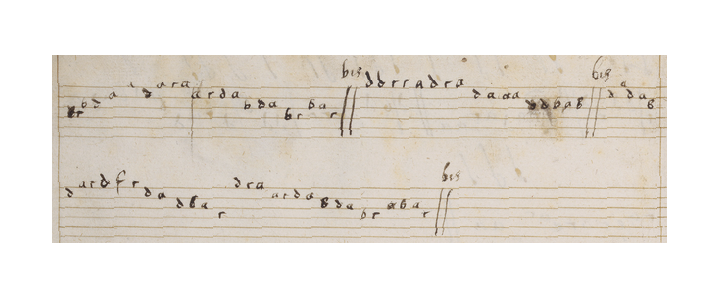 b d a a d a r a a r d a b d a b r b a r bis d d r r a d r a d a a a d b a b bis d a d a b
d a r d f r d a d b a r d r a a r d a b d a b r a b a r bis